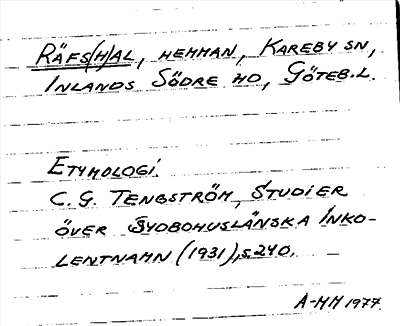 RÄFS(H)AL, HEMMAN, KAREBY SN,
INLANDS SÖDRE HD, GÖTEB.L.
ETYMOLOGI.
C. G. TENGSTRÖM, STUDIER
ÖVER SYDBOHUSLÄNSKA INKO-
LENTNAMN (1931), S.240.
A-HH 1977.